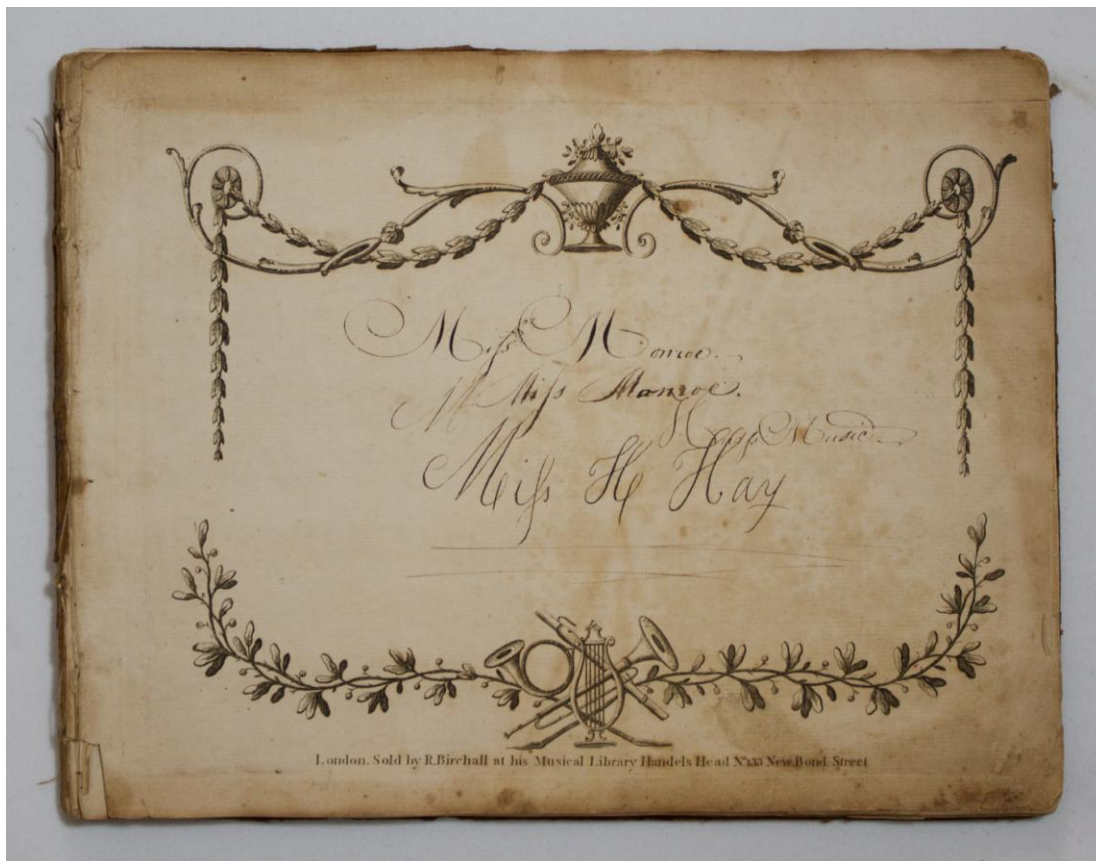 Miss Monroe.
Miss Monroe.
Music
Miss H Hay
London. Sold by R. Birchall at his Musical Library Handels Head No. 133 New Bond Street